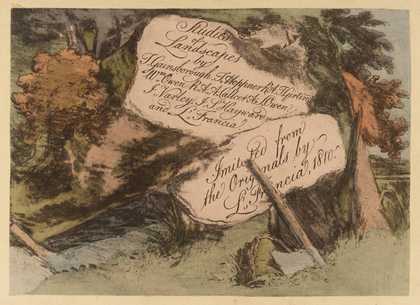 Studies of
Landscapes
by
T. Gainsborough, J. Hoppner R.A. T. Girtin
Wm. Owen R.A. A. Callcott A. S. Owen
J. Varley, J. S. Hayward
and L. Francia.
Imitated from
the Originals by
L. Francia, 1810.